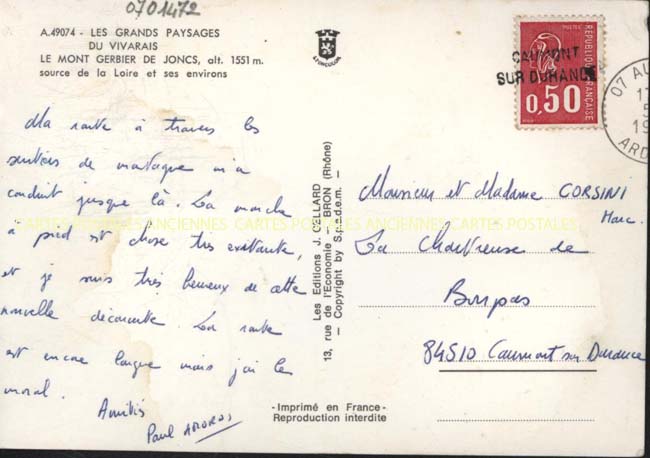 0701472
A.49074 - LES GRANDS PAYSAGES
DU VIVARAIS
LE MONT GERBIER DE JONCS, alt. 1551 m.
source de la Loire et ses environs
APINCULOR
Ma route à travers les
sentiers de montagne m'a
conduit jusque là. La marche
à pied est chose très exaltante,
et je suis très heureux de cette
nouvelle découverte. La route
est encore longue mais j'ai le
moral.
Amitiés
Paul AMOROS
Les Editions J. CELLARD
13, rue de l'Economie - BRON (Rhône)
- Copyright by S.p.a.d.e.m. -
-Imprimé en France-
Reproduction interdite
RÉPUBLIQUE FRANÇAISE
0,50
CAUMONT
SUR DURANCE
07 AU
17
5
19
ARD
Monsieur et Madame CORSINI
Marc
La Chartreuse de
Bonpas
84510 Caumont sur Durance
CARTES POSTALES ANCIENNES CARTES POSTALES ANCIENNES CARTES POSTALES